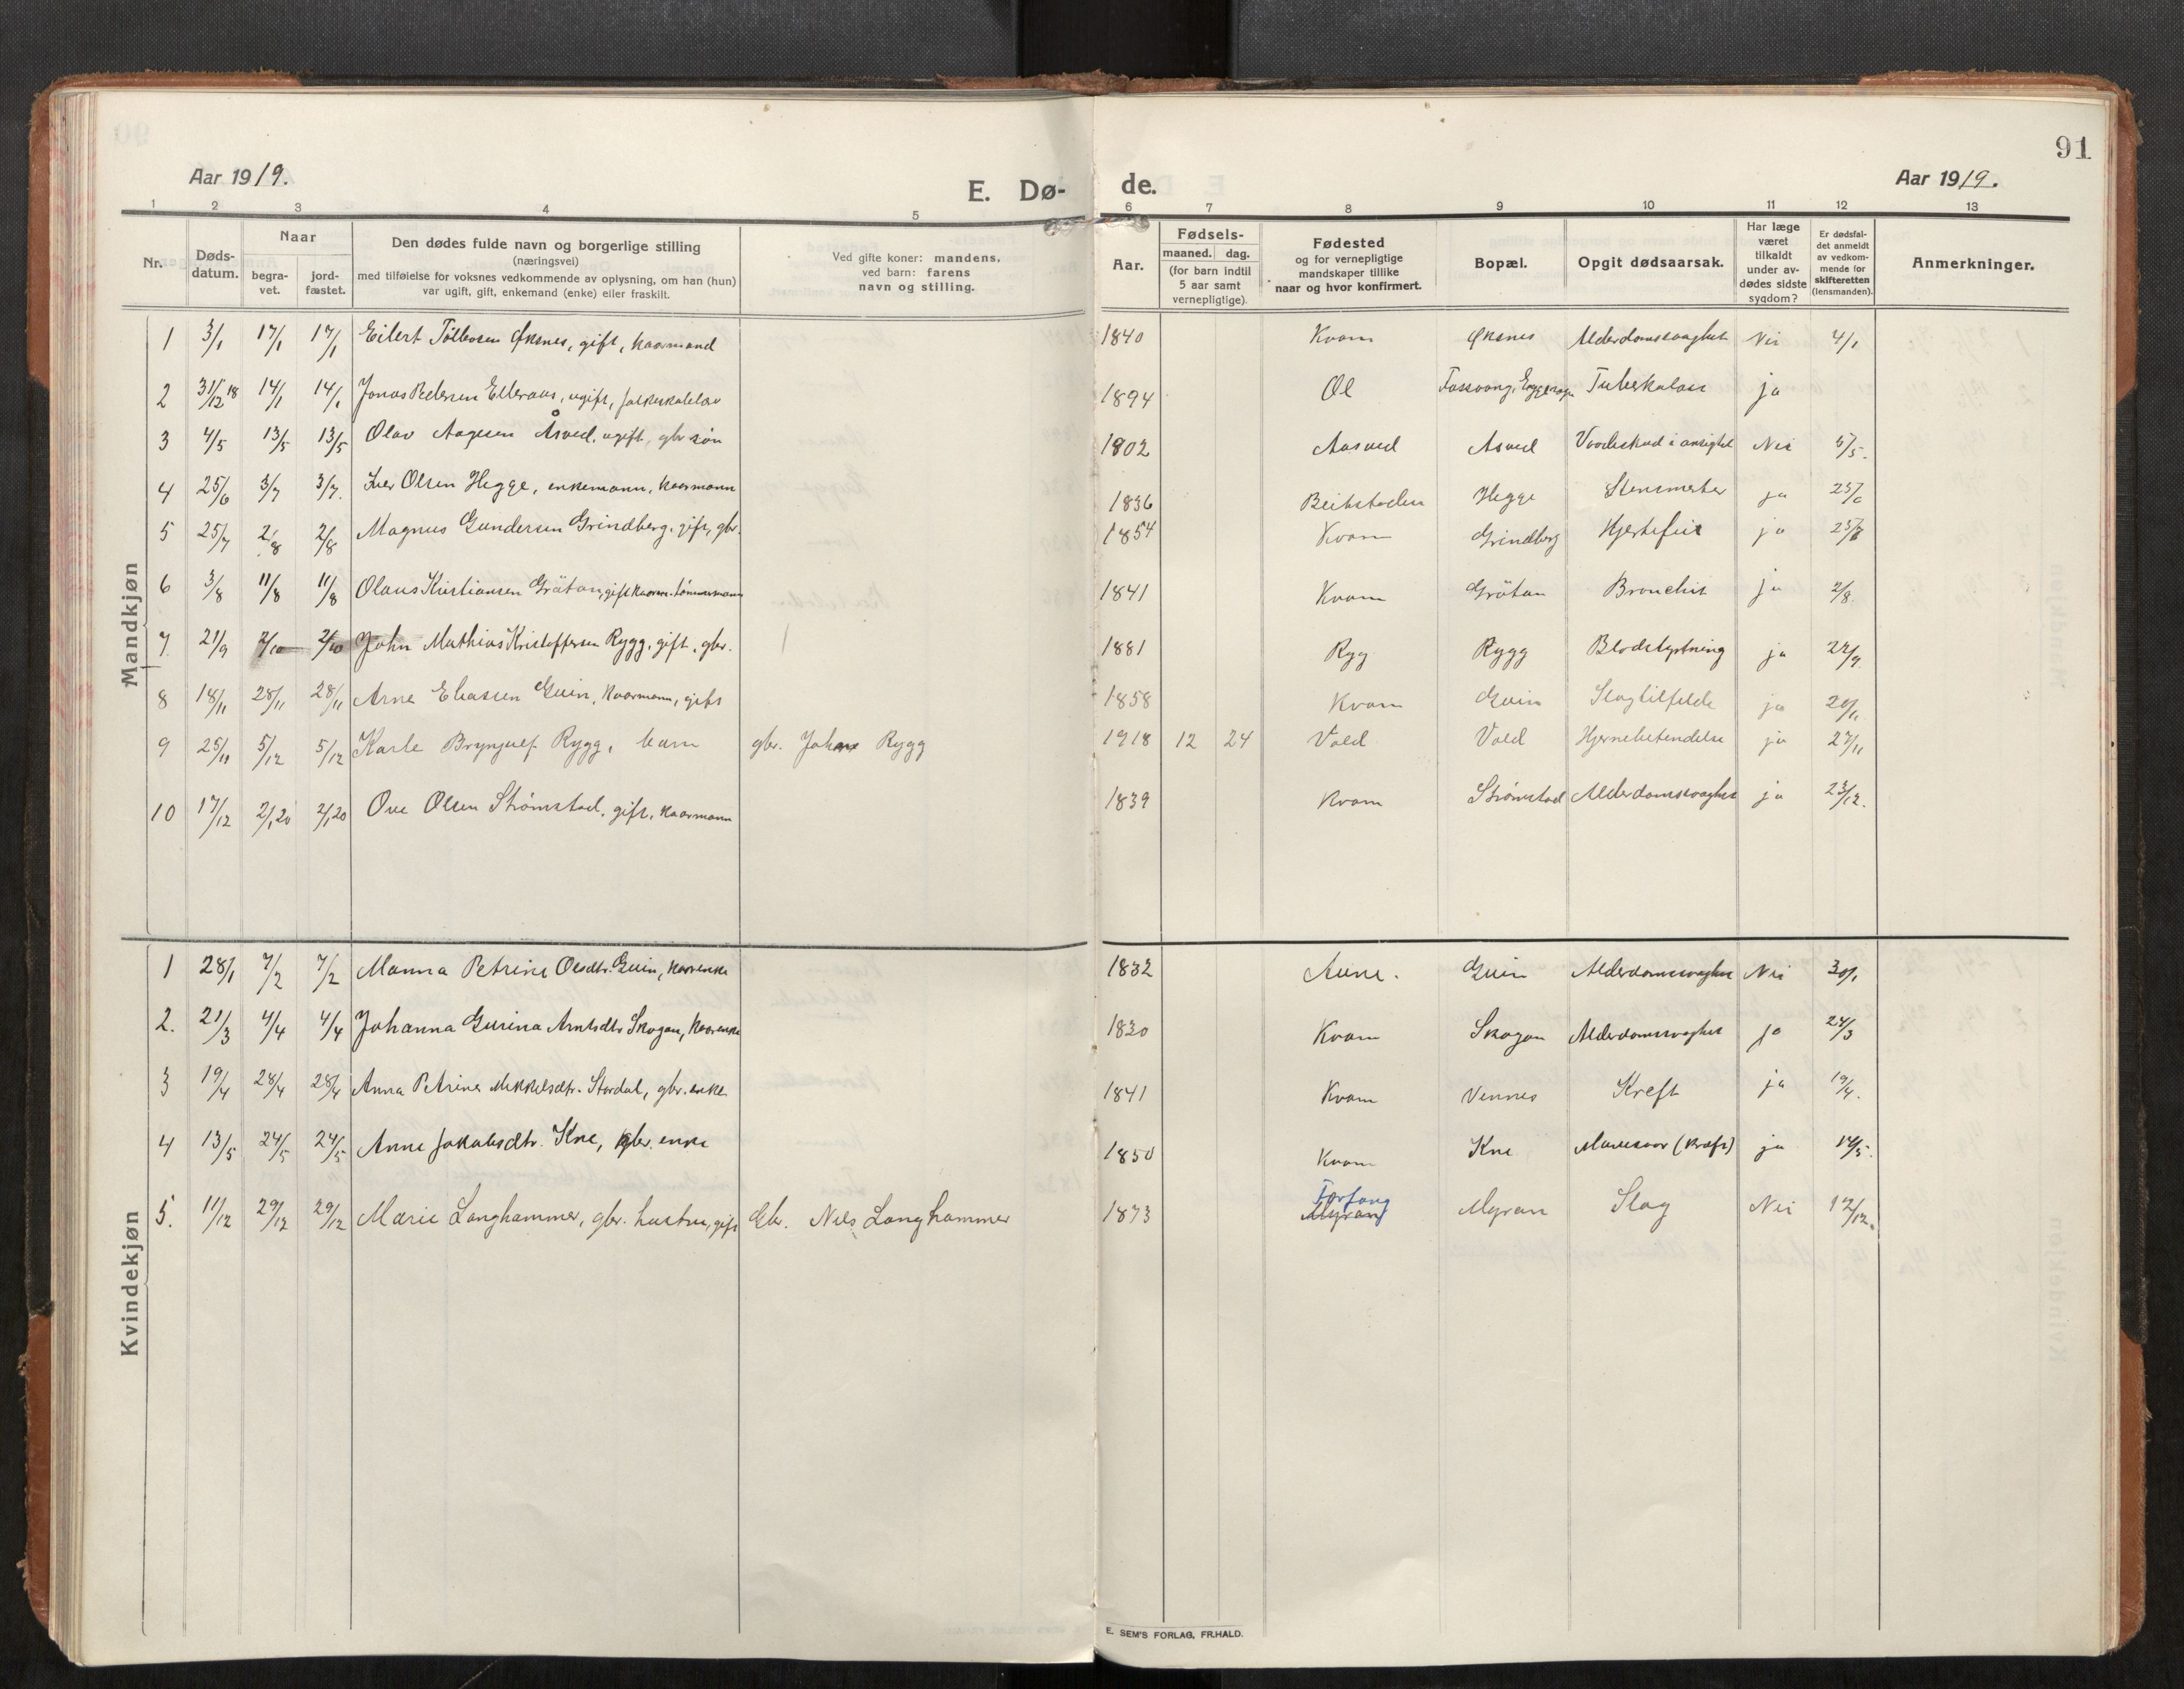 91
Aar 1919.
E. Dø-
de.
Aar 1919.
1 2 3 4 5 6 7 8 9 10 11 12 13
Nr.
Døds-
datum.
Naar
begra-
vet.
jord-
fæstet.
Den dødes fulde navn og borgerlige stilling
(næringsvei)
med tilføielse for voksnes vedkommende av oplysning, om han (hun)
var ugift, gift, enkemand (enke) eller fraskilt.
Ved gifte koner: mandens,
ved barn: farens
navn og stilling.
Aar.
Fødsels-
maaned. dag.
(for barn indtil
5 aar samt
vernepligtige).
Fødested
og for vernepligtige
mandskaper tillike
naar og hvor konfirmert.
Bopæl.
Opgit dødsaarsak.
Har læge
været
tilkaldt
under av-
dødes sidste
sygdom?
Er dødsfal-
det anmeldt
av vedkom-
mende for
skifteretten
(lensmanden).
Anmerkninger.
Mandkjøn
1 3/1 17/1 17/1 Eilert Tollevsen Øksnes, gift, kaarmand 1840 Kvam Øksnes Alderdomssvaghet Nei 4/1
2 31/12 18 14/1 14/1 Jonas Pedersen ugift, 1894 Øl Tuberkulose ja
3 4/5 13/5 13/5 Olav Aagesen Åsved, ugift, gbr søn 1902 Aasved Asved Vaadeskud i ansigtet Nei 5/5.
4 25/6 3/7 3/7. Iver Olsen Hegge, enkemann, kaarmann 1836 Beitstaden Hegge ja 25/6
5 25/7 2/8 2/8 Magnus Gundersen Grindberg, gift, gbr. 1854 Kvam Grindberg Hjertefeil ja
6 3/8 11/8 11/8 Olaus Kristiansen Gråtan, gift kaarm. tømmermann 1841 Kvam Gråtan Bronchit ja 2/8.
7. 21/9 2/10 2/10 John Mathias Kristoffersen Rygg, gift, gbr. 1881 Ryg Rygg Blodstyrtning ja 22/9.
8 18/11 28/11 28/11 Arne Eliassen Guin, kaarmann, gift 1858 Kvam Guin Slagtilfelde ja 20/11
9 25/11 5/12 5/12 Karle Brynjulf Rygg, barn gbr. Johan Rygg 1918 12 24 Vold Vold Hjernebetendelse ja 27/11
10 17/12 2/1 20 2/1 20 Ove Olsen Strømstad, gift, kaarmann 1839 Kvam Strømstad Alderdomssvaghet ja 23/12.
Kvindekjøn
1 28/1 7/2 7/2 Manna Petrine Olsdtr. Guin, kaarenke 1832 Aune. Guin Alderdomssvaghet Nei 30/1
2. 21/3 4/4 4/4 Johanna Gurina Arntsdtr Skogan, kaarenke 1830 Kvam Skogan Alderdomssvaghet ja 24/3
3 19/4 28/4 28/4 Anna Petrine Mikkelsdtr. Stordal, gbr. enke 1841 Kvam Vennes Kreft ja 19/4.
4 13/5 24/5 24/5 Anne Jakobsdtr. Kne, gbr. enke 1850 Kvam Kne Mavesaar (kræft) ja 14/5.
5. 11/12 29/12 29/12 Marie Langhammer, gbr. hustru, gift Gbr. Nils Langhammer 1873 Forfang Myran Myran Slag Nei 12/12.
E. SEM'S FORLAG, FR.HALD.